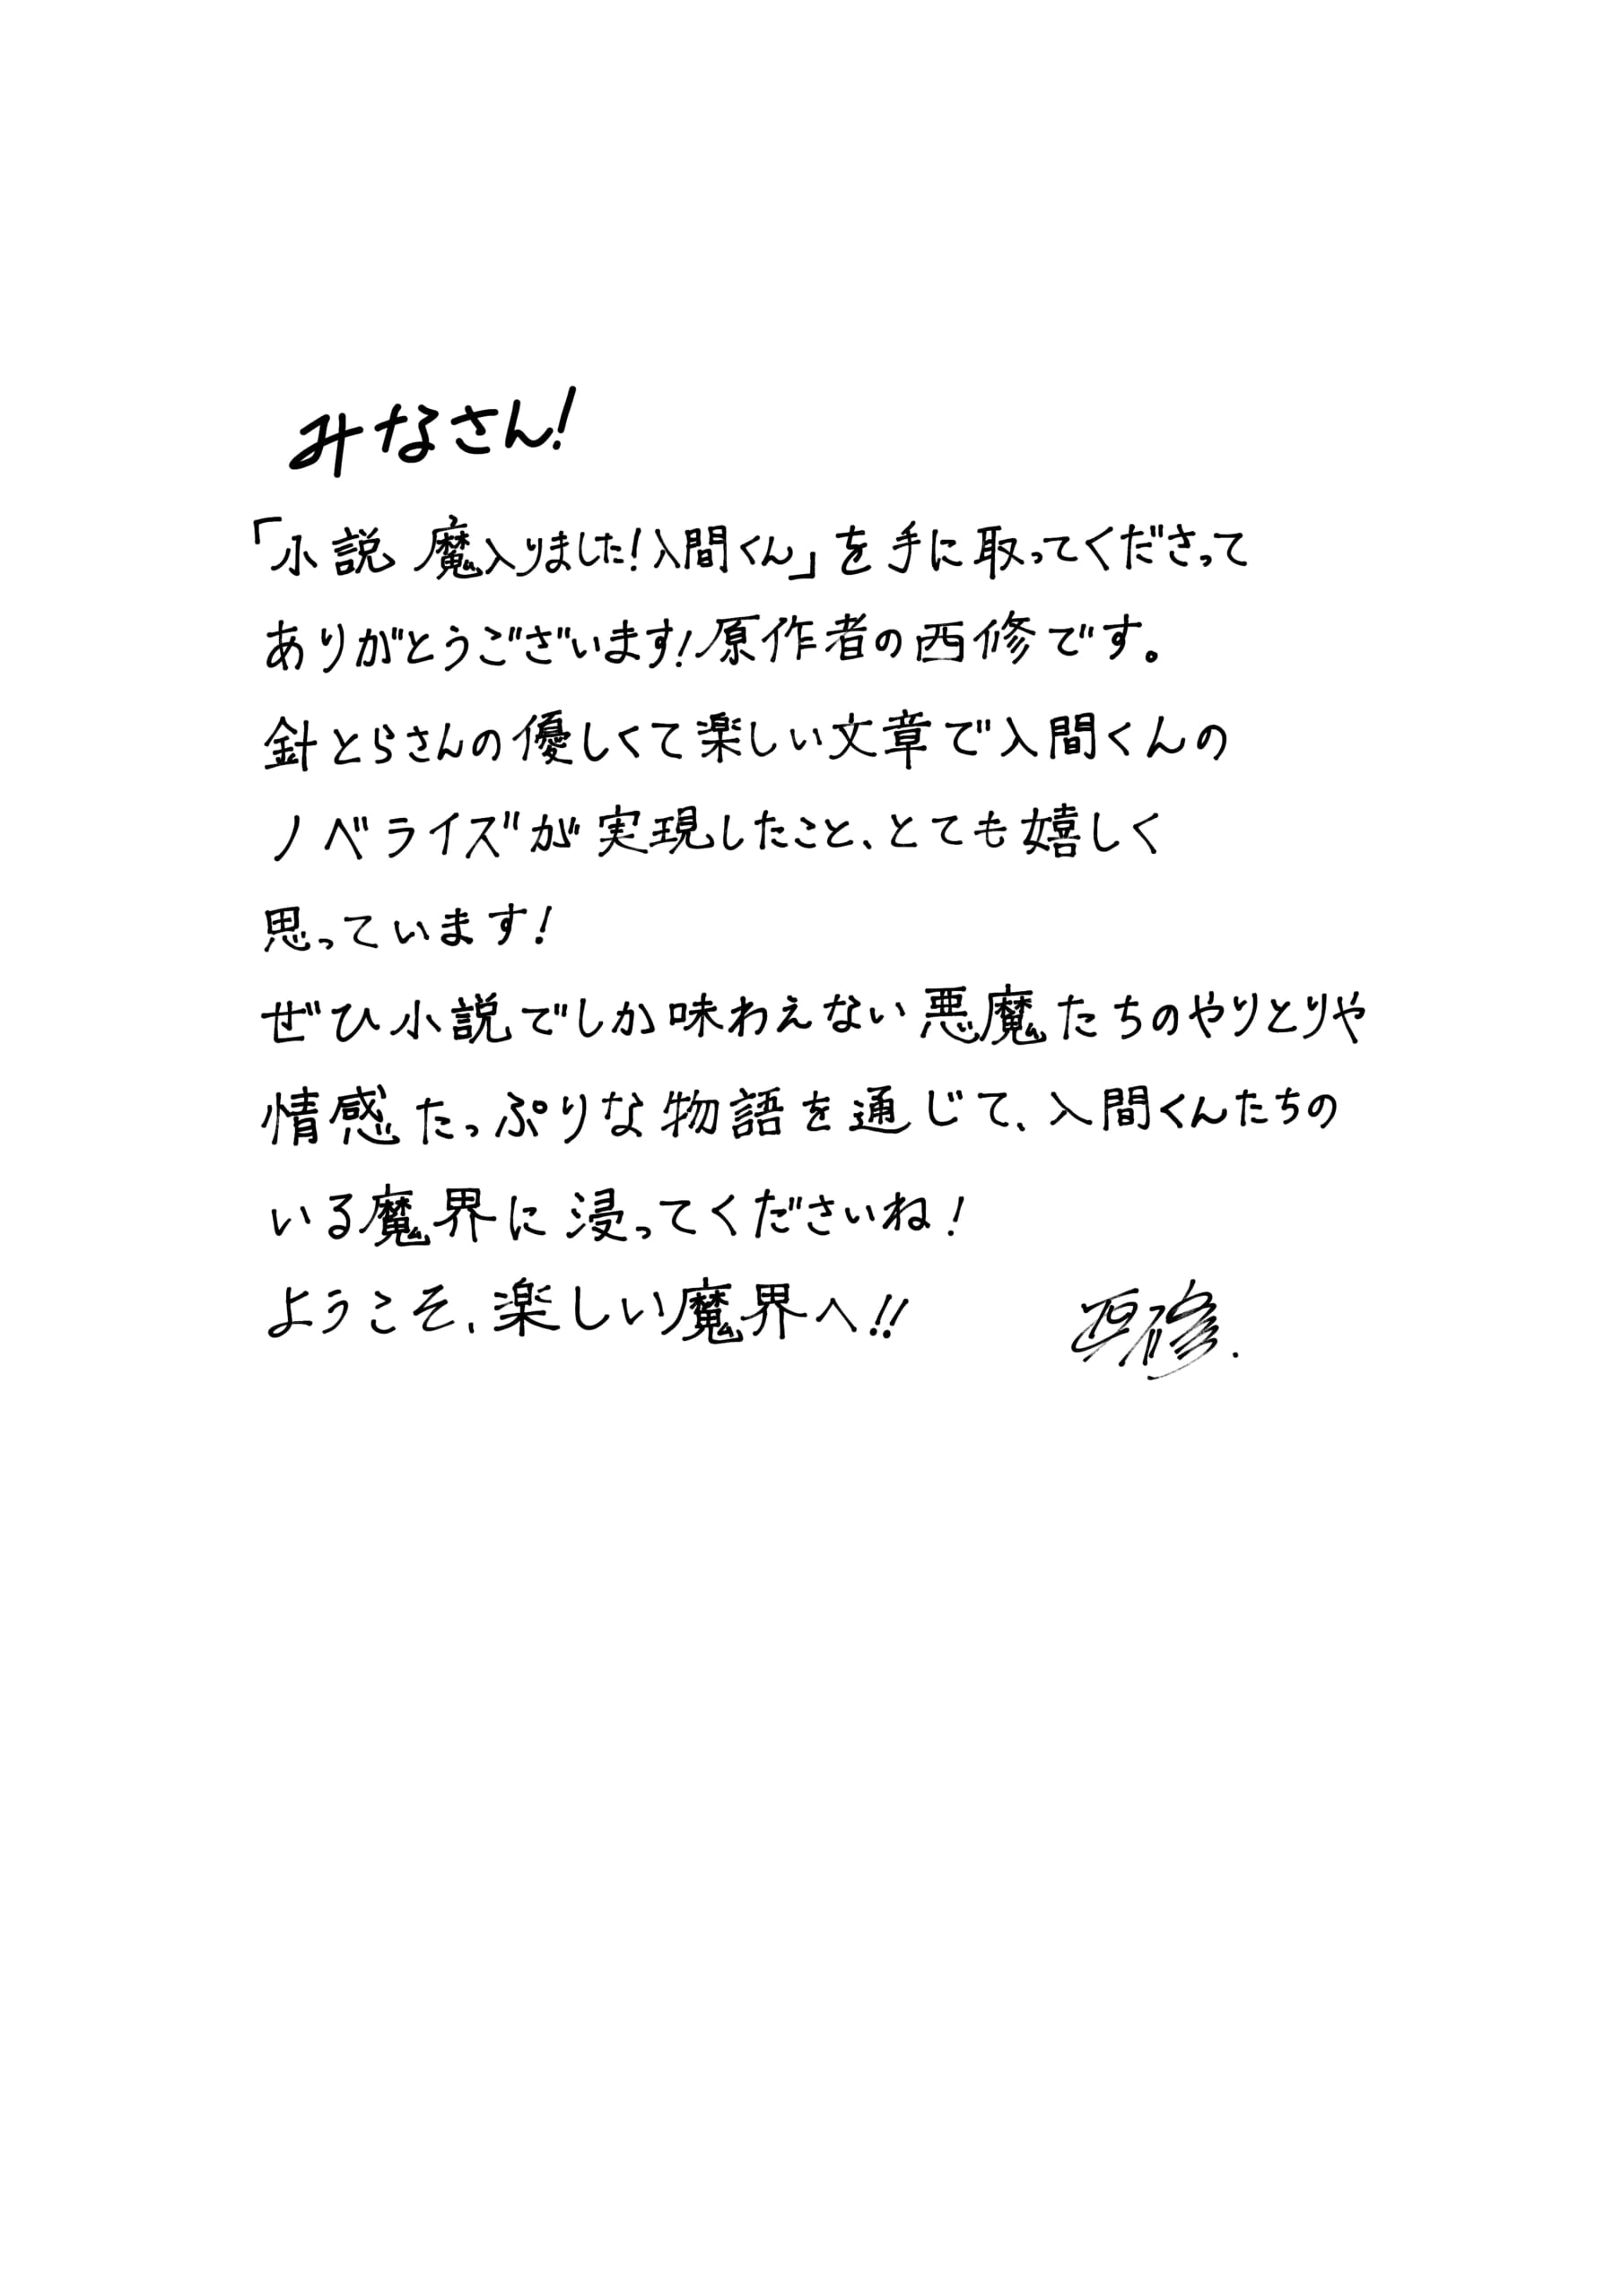 みなさん!
「小説 魔入りました!入間くん」を手に取ってくださって
ありがとうございます!原作者の西修です。
針とらさんの優しくて楽しい文章で入間くんの
ノベライズが実現したこと、とても嬉しく
思っています!
ぜひ小説でしか味わえない悪魔たちのやりとりや
情感たっぷりな物語を通じて、入間くんたちの
いる魔界に浸ってくださいね!
ようこそ、楽しい魔界へ!!
西修.